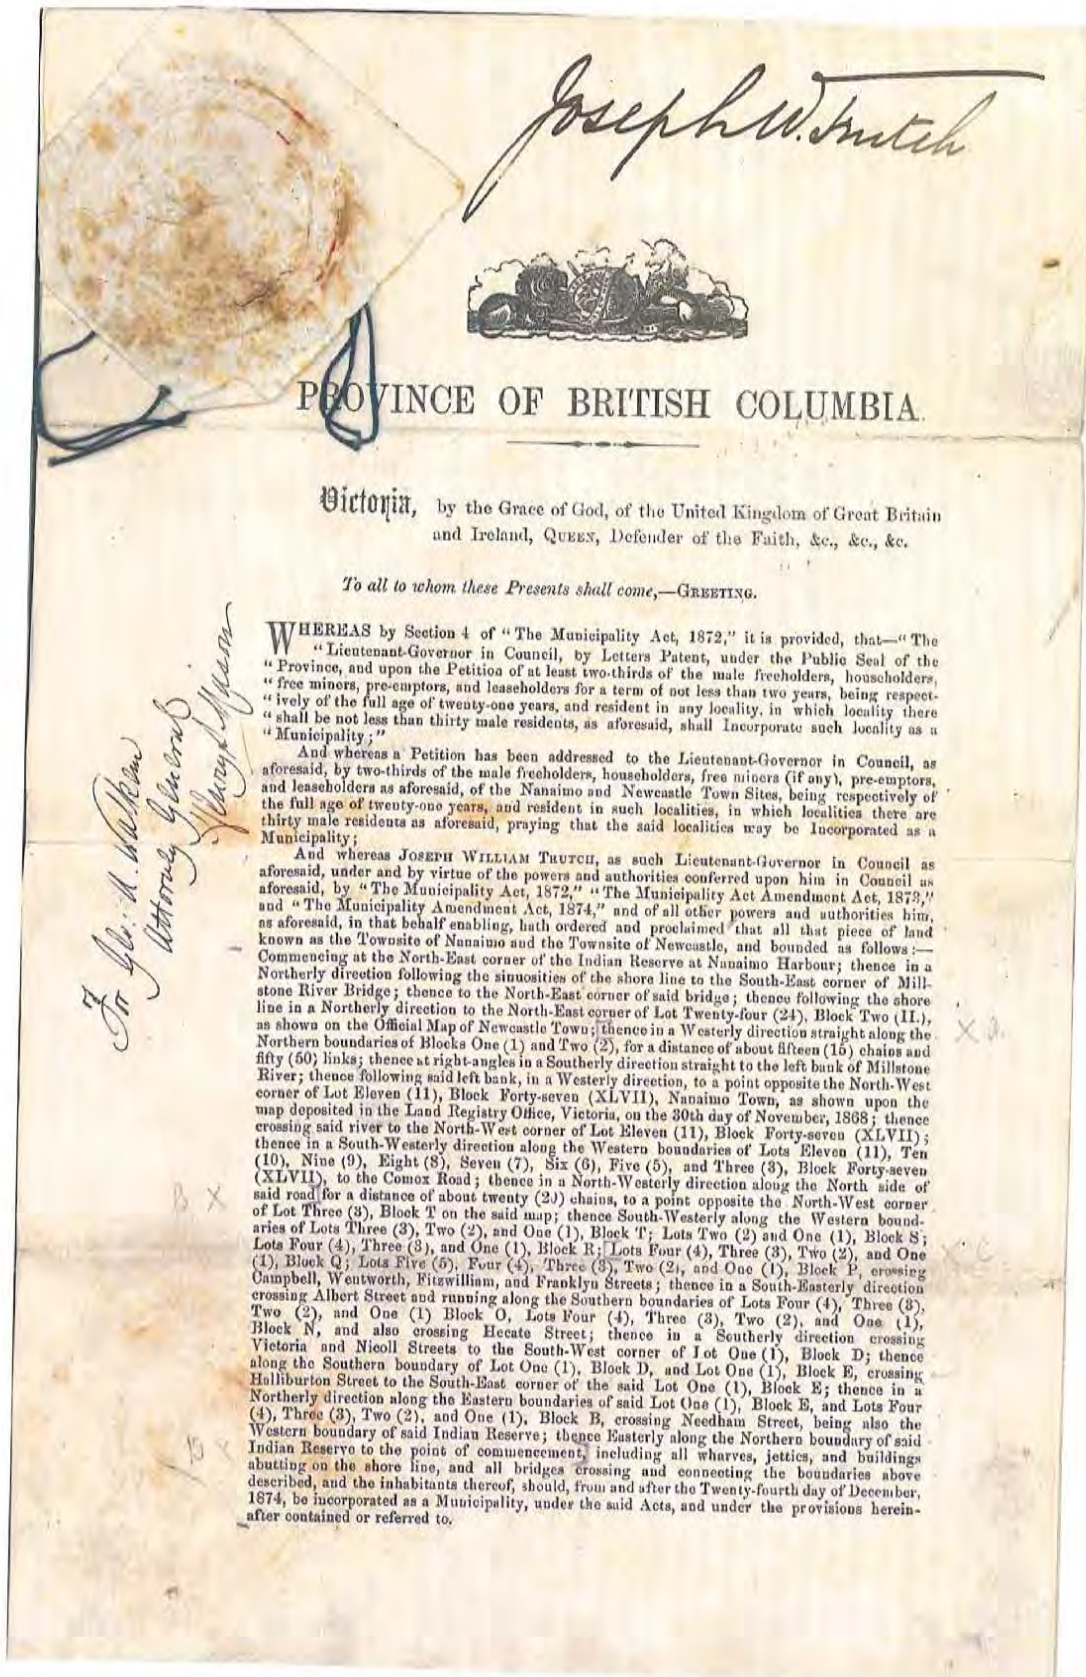 Joseph W. Trutch
PROVINCE OF BRITISH COLUMBIA.
Victoria, by the Grace of God, of the United Kingdom of Great Britain
and Ireland, QUEEN, Defender of the Faith, &c., &c., &c.
To all to whom these Presents shall come,—GREETING.
WHEREAS by Section 4 of "The Municipality Act, 1872," it is provided, that—"The
"Lieutenant-Governor in Council, by Letters Patent, under the Public Seal of the
"Province, and upon the Petition of at least two-thirds of the male freeholders, householders,
"free miners, pre-emptors, and leaseholders for a term of not less than two years, being respect-
"ively of the full age of twenty-one years, and resident in any locality, in which locality there
"shall be not less than thirty male residents, as aforesaid, shall Incorporate such locality as a
"Municipality;"
And whereas a Petition has been addressed to the Lieutenant-Governor in Council, as
aforesaid, by two-thirds of the male freeholders, householders, free miners (if any), pre-emptors,
and leaseholders as aforesaid, of the Nanaimo and Newcastle Town Sites, being respectively of
the full age of twenty-one years, and resident in such localities, in which localities there are
thirty male residents as aforesaid, praying that the said localities may be Incorporated as a
Municipality;
And whereas JOSEPH WILLIAM TRUTCH, as such Lieutenant-Governor in Council as
aforesaid, under and by virtue of the powers and authorities conferred upon him in Council as
aforesaid, by "The Municipality Act, 1872," "The Municipality Act Amendment Act, 1873,"
and "The Municipality Amendment Act, 1874," and of all other powers and authorities him,
as aforesaid, in that behalf enabling, hath ordered and proclaimed that all that piece of land
known as the Townsite of Nanaimo and the Townsite of Newcastle, and bounded as follows:—
Commencing at the North-East corner of the Indian Reserve at Nanaimo Harbour; thence in a
Northerly direction following the sinuosities of the shore line to the South-East corner of Mill-
stone River Bridge; thence to the North-East corner of said bridge; thence following the shore
line in a Northerly direction to the North-East corner of Lot Twenty-four (24), Block Two (II.),
as shown on the Official Map of Newcastle Town; thence in a Westerly direction straight along the
Northern boundaries of Blocks One (1) and Two (2), for a distance of about fifteen (15) chains and
fifty (50) links; thence at right-angles in a Southerly direction straight to the left bank of Millstone
River; thence following said left bank, in a Westerly direction, to a point opposite the North-West
corner of Lot Eleven (11), Block Forty-seven (XLVII), Nanaimo Town, as shown upon the
map deposited in the Land Registry Office, Victoria, on the 30th day of November, 1868; thence
crossing said river to the North-West corner of Lot Eleven (11), Block Forty-seven (XLVII);
thence in a South-Westerly direction along the Western boundaries of Lots Eleven (11), Ten
(10), Nine (9), Eight (8), Seven (7), Six (6), Five (5), and Three (3), Block Forty-seven
(XLVII), to the Comox Road; thence in a North-Westerly direction along the North side of
said road for a distance of about twenty (20) chains, to a point opposite the North-West corner
of Lot Three (3), Block T on the said map; thence South-Westerly along the Western bound-
aries of Lots Three (3), Two (2), and One (1), Block T; Lots Two (2) and One (1), Block S;
Lots Four (4), Three (3), and One (1), Block R; Lots Four (4), Three (3), Two (2), and One
(1), Block Q; Lots Five (5), Four (4), Three (3), Two (2), and One (1), Block P, crossing
Campbell, Wentworth, Fitzwilliam, and Franklyn Streets; thence in a South-Easterly direction
crossing Albert Street and running along the Southern boundaries of Lots Four (4), Three (3),
Two (2), and One (1) Block O, Lots Four (4), Three (3), Two (2), and One (1),
Block N, and also crossing Hecate Street; thence in a Southerly direction crossing
Victoria and Nicoll Streets to the South-West corner of Lot One (1), Block D; thence
along the Southern boundary of Lot One (1), Block D, and Lot One (1), Block E, crossing
Halliburton Street to the South-East corner of the said Lot One (1), Block E; thence in a
Northerly direction along the Eastern boundaries of said Lot One (1), Block E, and Lots Four
(4), Three (3), Two (2), and One (1), Block B, crossing Needham Street, being also the
Western boundary of said Indian Reserve; thence Easterly along the Northern boundary of said
Indian Reserve to the point of commencement, including all wharves, jetties, and buildings
abutting on the shore line, and all bridges crossing and connecting the boundaries above
described, and the inhabitants thereof, should, from and after the Twenty-fourth day of December,
1874, be incorporated as a Municipality, under the said Acts, and under the provisions herein-
after contained or referred to.
For Geo: A. Walkem
Attorney General
Henry Mason
B X